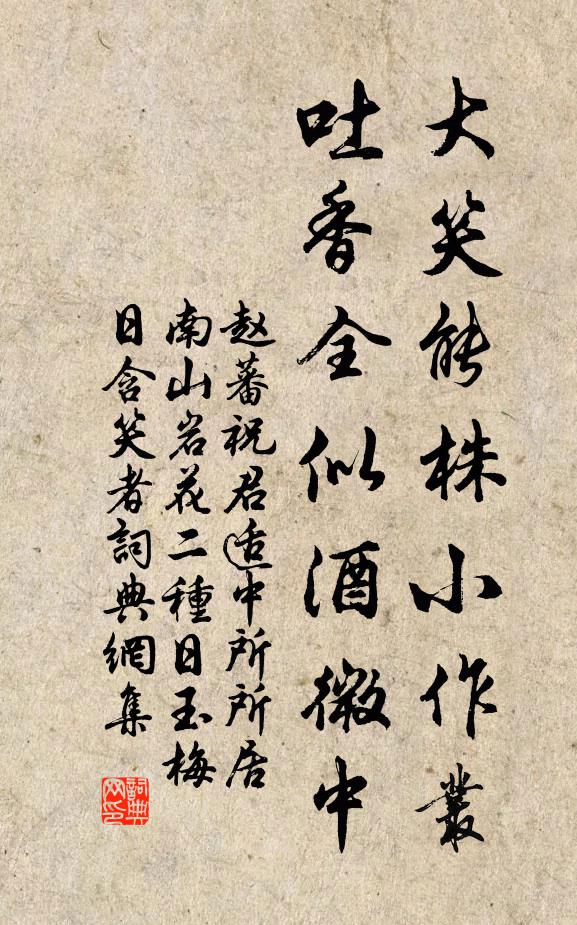 大笑能株小作叢
吐香全似酒微中
赵蕃祝君适中所所居
南山岩花二種日玉梅
日含笑者詞典網集
詞典网印